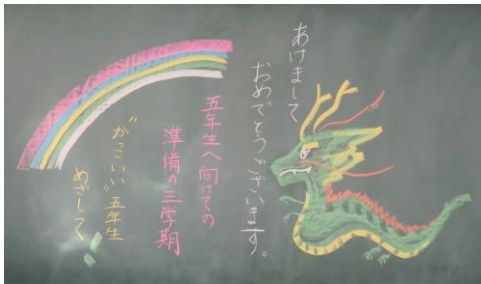 あけまして
おめでとうございます。
五年生へ向けての
準備の三学期
"かっこいい"五年生
めざして